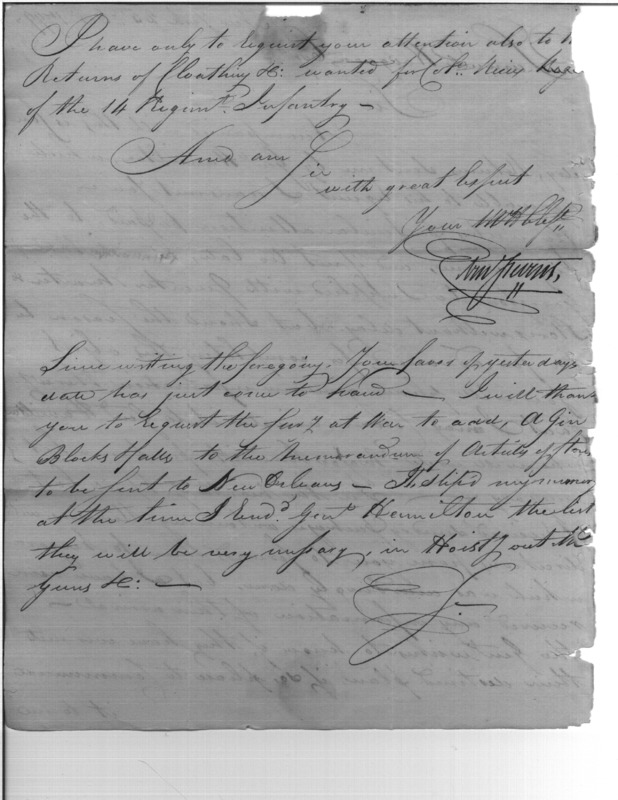 I have only to request your attention also to
Returns of Cloathing &c: wanted for Coln. Rices
of the 14 Regimt. Infantry —
And am Sir
with great Respect
Your Ob St
Ebenr Stevens,
Since writing the foregoing, Your favor of yesterdays
date has just come to hand — I will thank
you to request the Secy at War to add, A Gin
Blocks & falls to the Memorandum of Articles of Stores
to be sent to New Orleans — It Slip'd my memory
at the time I Encd. Genl. Hamilton the list
they will be very necessary, in Hoistg out the
Guns &c: —
S.